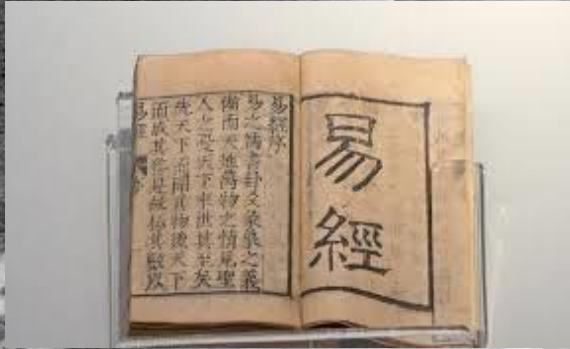 易經
易經序
易之為書卦爻彖象之義
備而天地萬物之情見聖
人之憂天下來世其至矣
先天下而開其物後天下
而成其務是故極其數以
易經